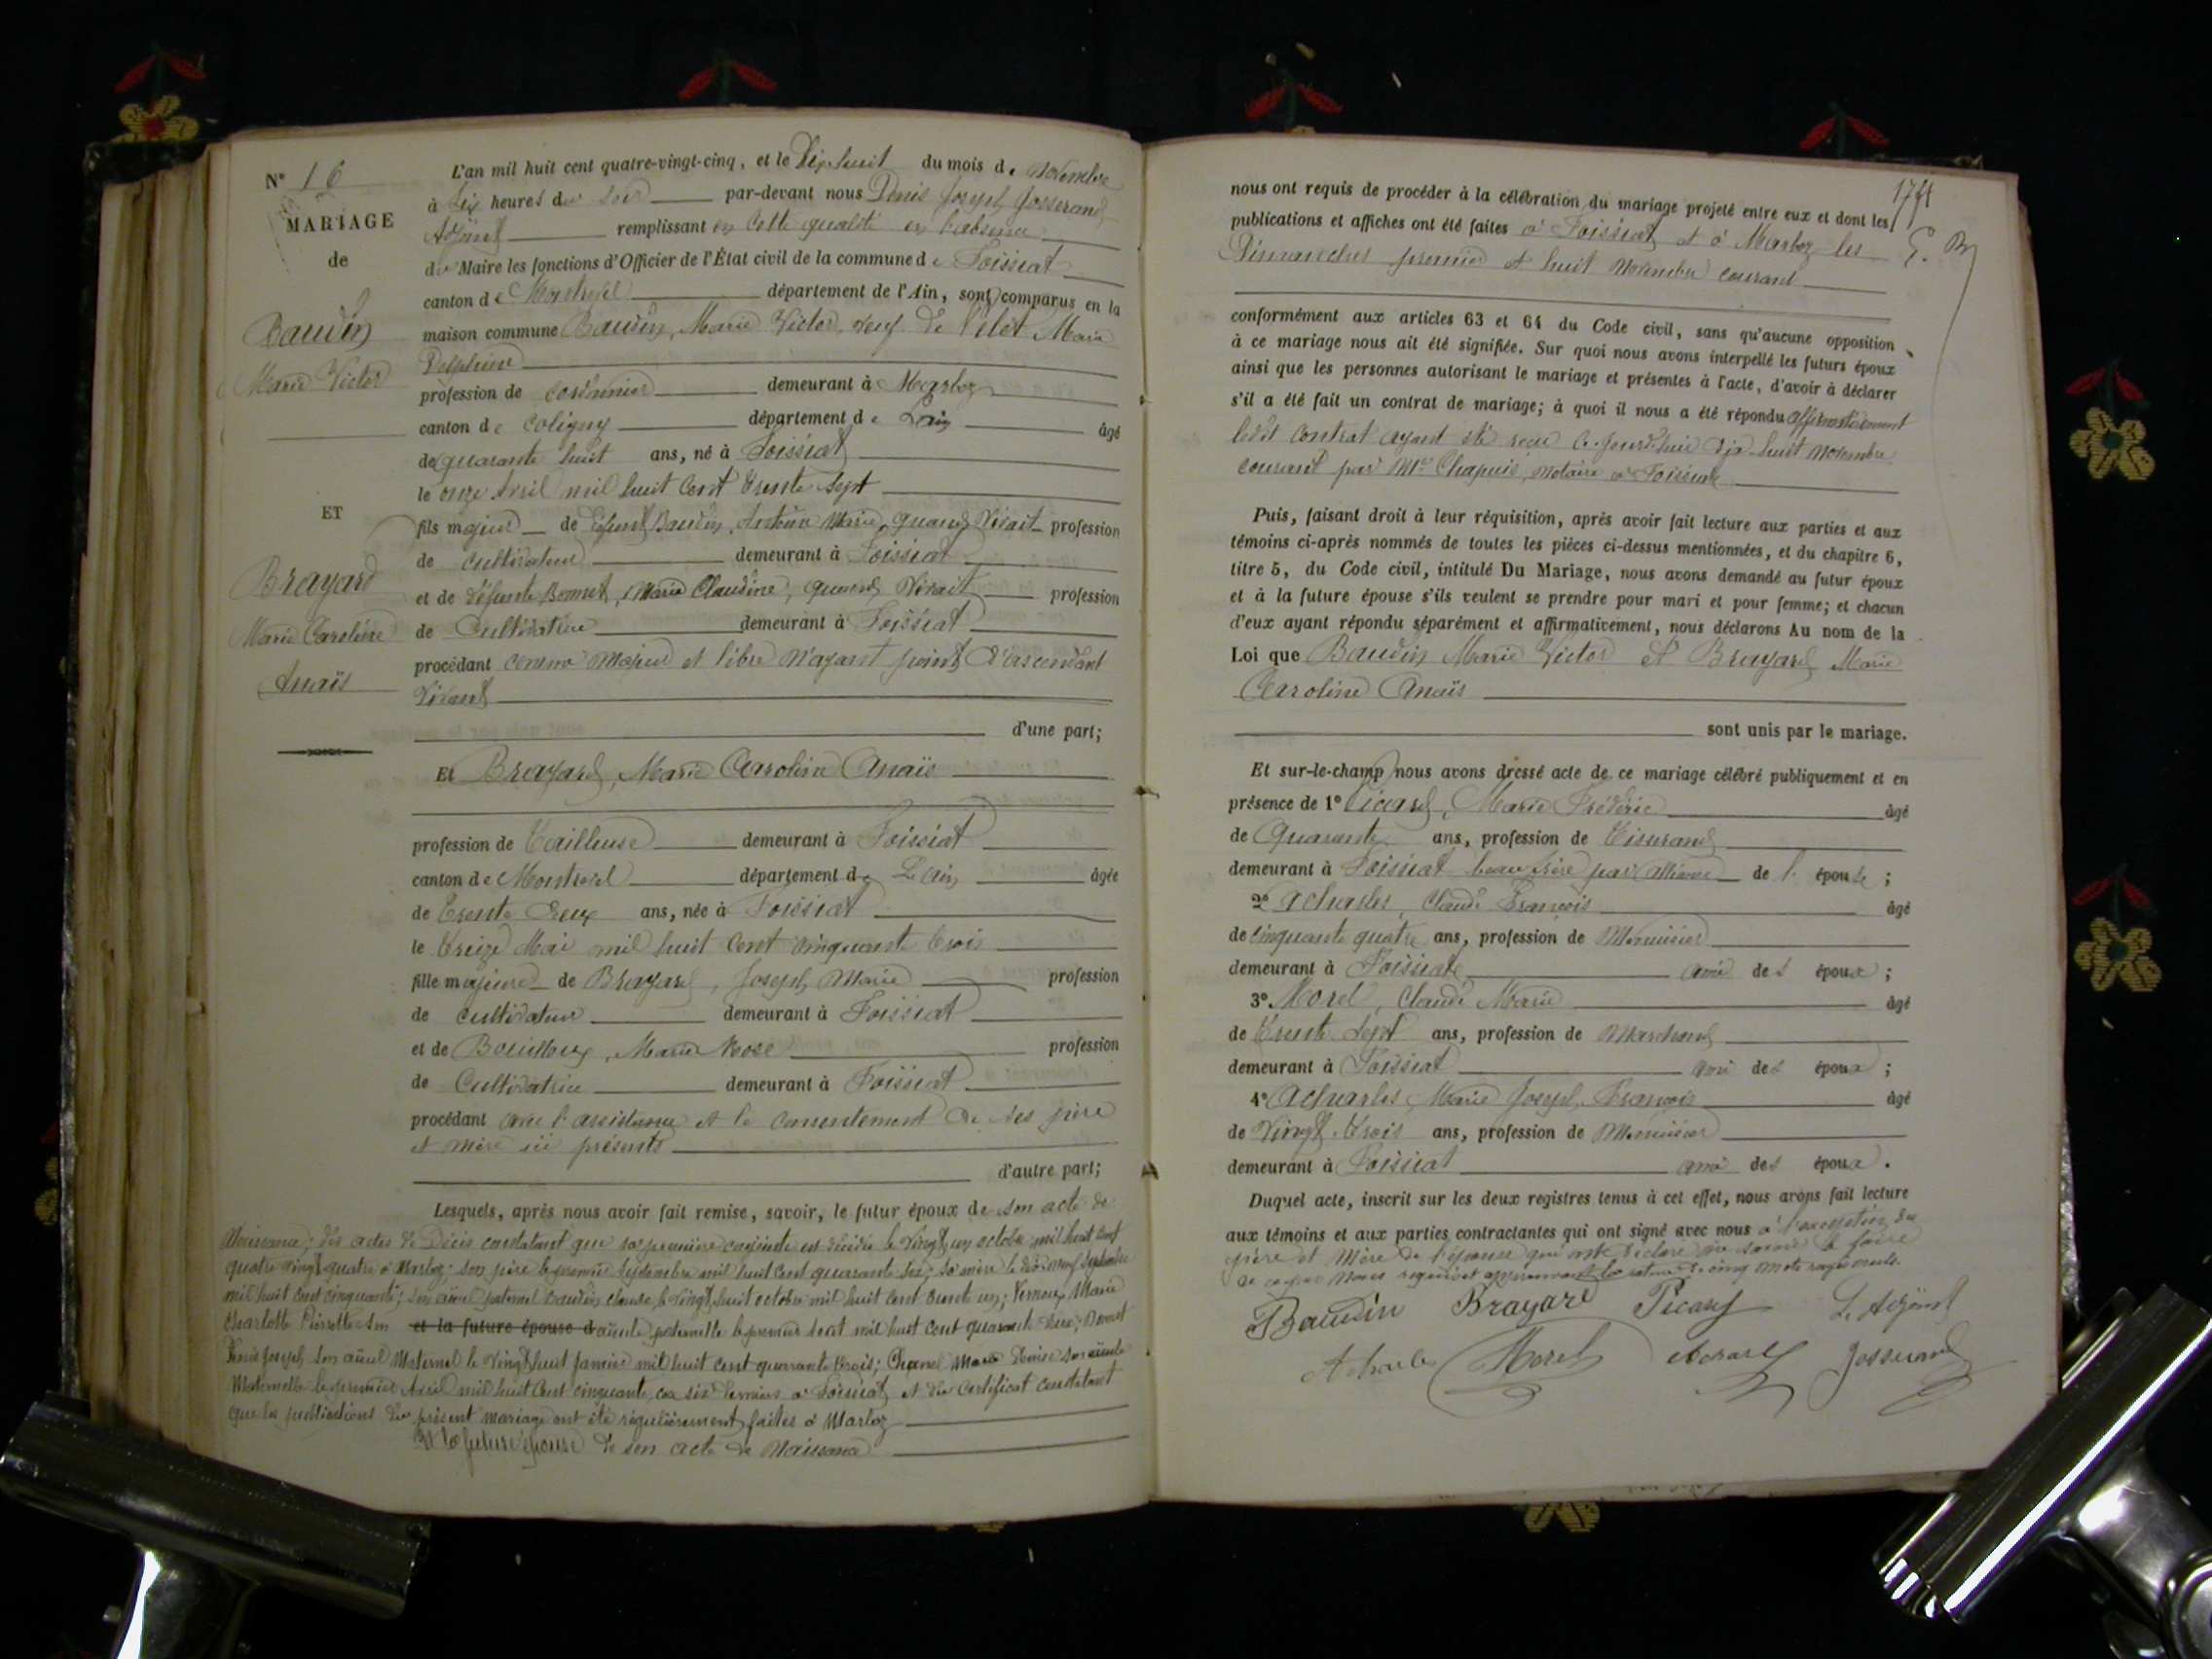 N° 16
MARIAGE
de
Baudin
Marie Victor
ET
Brayard
Marie Caroline
Anaïs
L'an mil huit cent quatre-vingt-cinq, et le Dix huit du mois de Novembre
à six heures du soir par-devant nous Denis Joseph Josserand
Adjoint remplissant en cette qualité en l'absence
du Maire les fonctions d'Officier de l'État civil de la commune de Foissiat
canton de Montrevel département de l'Ain, sont comparus en la
maison commune Baudin, Marie Victor, veuf de Marie
Delphine
profession de cordonnier demeurant à Marboz
canton de Coligny département de L'ain âgé
de quarante huit ans, né à Foissiat
le onze Avril mil huit cent trente sept
fils majeur de défunt Baudin, Marie, quand vivait profession
de cultivateur demeurant à Foissiat
et de défunte Bonnet, Marie Claudine, quand vivait profession
de Cultivatrice demeurant à Foissiat
procédant comme majeur et libre n'ayant point d'ascendant
vivant
d'une part;
Et Brayard, Marie Caroline Anaïs
profession de Tailleuse demeurant à Foissiat
canton de Montrevel département de L'ain âgée
de trente deux ans, née à Foissiat
le treize Mai mil huit cent cinquante trois
fille majeure de Brayard, Joseph Marie profession
de cultivateur demeurant à Foissiat
et de Bouilloux, Marie Rose profession
de Cultivatrice demeurant à Foissiat
procédant avec l'assistance et le consentement de ses père
et mère ici présents
d'autre part;
Lesquels, après nous avoir fait remise, savoir, le futur époux de son acte de
Naissance; des actes de Décès constatant que sa première conjointe est décédée le vingt un octobre mil huit cent
quatre vingt quatre à Marboz; son père le premier Septembre mil huit cent quarante ; sa mère le dix neuf Septembre
mil huit cent cinquante; son aïeul paternel Baudin Claude le vingt huit octobre mil huit cent trente un; Vernoux Marie
Charlotte Pierrette son et la future épouse d aïeule paternelle le premier Avril mil huit cent quarante deux; Bonnet
Denis Joseph son aïeul Maternel le vingt huit Janvier mil huit cent quarante trois; Marie Denise son aïeule
Maternelle le premier Avril mil huit cent cinquante, ces six derniers à Foissiat et du certificat constatant
que les publications du présent mariage ont été régulièrement faites à Marboz
Et la future épouse de son acte de Naissance
174
nous ont requis de procéder à la célébration du mariage projeté entre eux et dont les
publications et affiches ont été faites à Foissiat et à Marboz les
Dimanches premier et huit Novembre courant
conformément aux articles 63 et 64 du Code civil, sans qu'aucune opposition
à ce mariage nous ait été signifiée. Sur quoi nous avons interpellé les futurs époux
ainsi que les personnes autorisant le mariage et présentes à l'acte, d'avoir à déclarer
s'il a été fait un contrat de mariage; à quoi il nous a été répondu affirmativement
ledit contrat ayant été reçu ce jourd'hui dix huit Novembre
courant par Me Chapuis, Notaire à Foissiat
Puis, faisant droit à leur réquisition, après avoir fait lecture aux parties et aux
témoins ci-après nommés de toutes les pièces ci-dessus mentionnées, et du chapitre 6,
titre 5, du Code civil, intitulé Du Mariage, nous avons demandé au futur époux
et à la future épouse s'ils veulent se prendre pour mari et pour femme; et chacun
d'eux ayant répondu séparément et affirmativement, nous déclarons Au nom de la
Loi que Baudin Marie Victor et Brayard Marie
Caroline Anaïs
sont unis par le mariage.
Et sur-le-champ nous avons dressé acte de ce mariage célébré publiquement et en
présence de 1° Picard, Marie Frédéric âgé
de Quarante ans, profession de Tisserand
demeurant à Foissiat beau frère par alliance de l' épouse;
2° Acharles, Claude François âgé
de cinquante quatre ans, profession de Menuisier
demeurant à Foissiat ami des époux;
3° Morel, Claude Marie âgé
de trente sept ans, profession de Marchand
demeurant à Foissiat ami des époux;
4° Acharles, Marie Joseph François âgé
de vingt trois ans, profession de Menuisier
demeurant à Foissiat ami des époux.
Duquel acte, inscrit sur les deux registres tenus à cet effet, nous avons fait lecture
aux témoins et aux parties contractantes qui ont signé avec nous à l'exception des
père et mère de l'épouse qui ont déclaré ne savoir le faire
de ce par nous requis et approuvant la rature de cinq mots rayés nuls.
Baudin Brayard Picard L'Adjoint
Acharles Morel Acharles Josserand